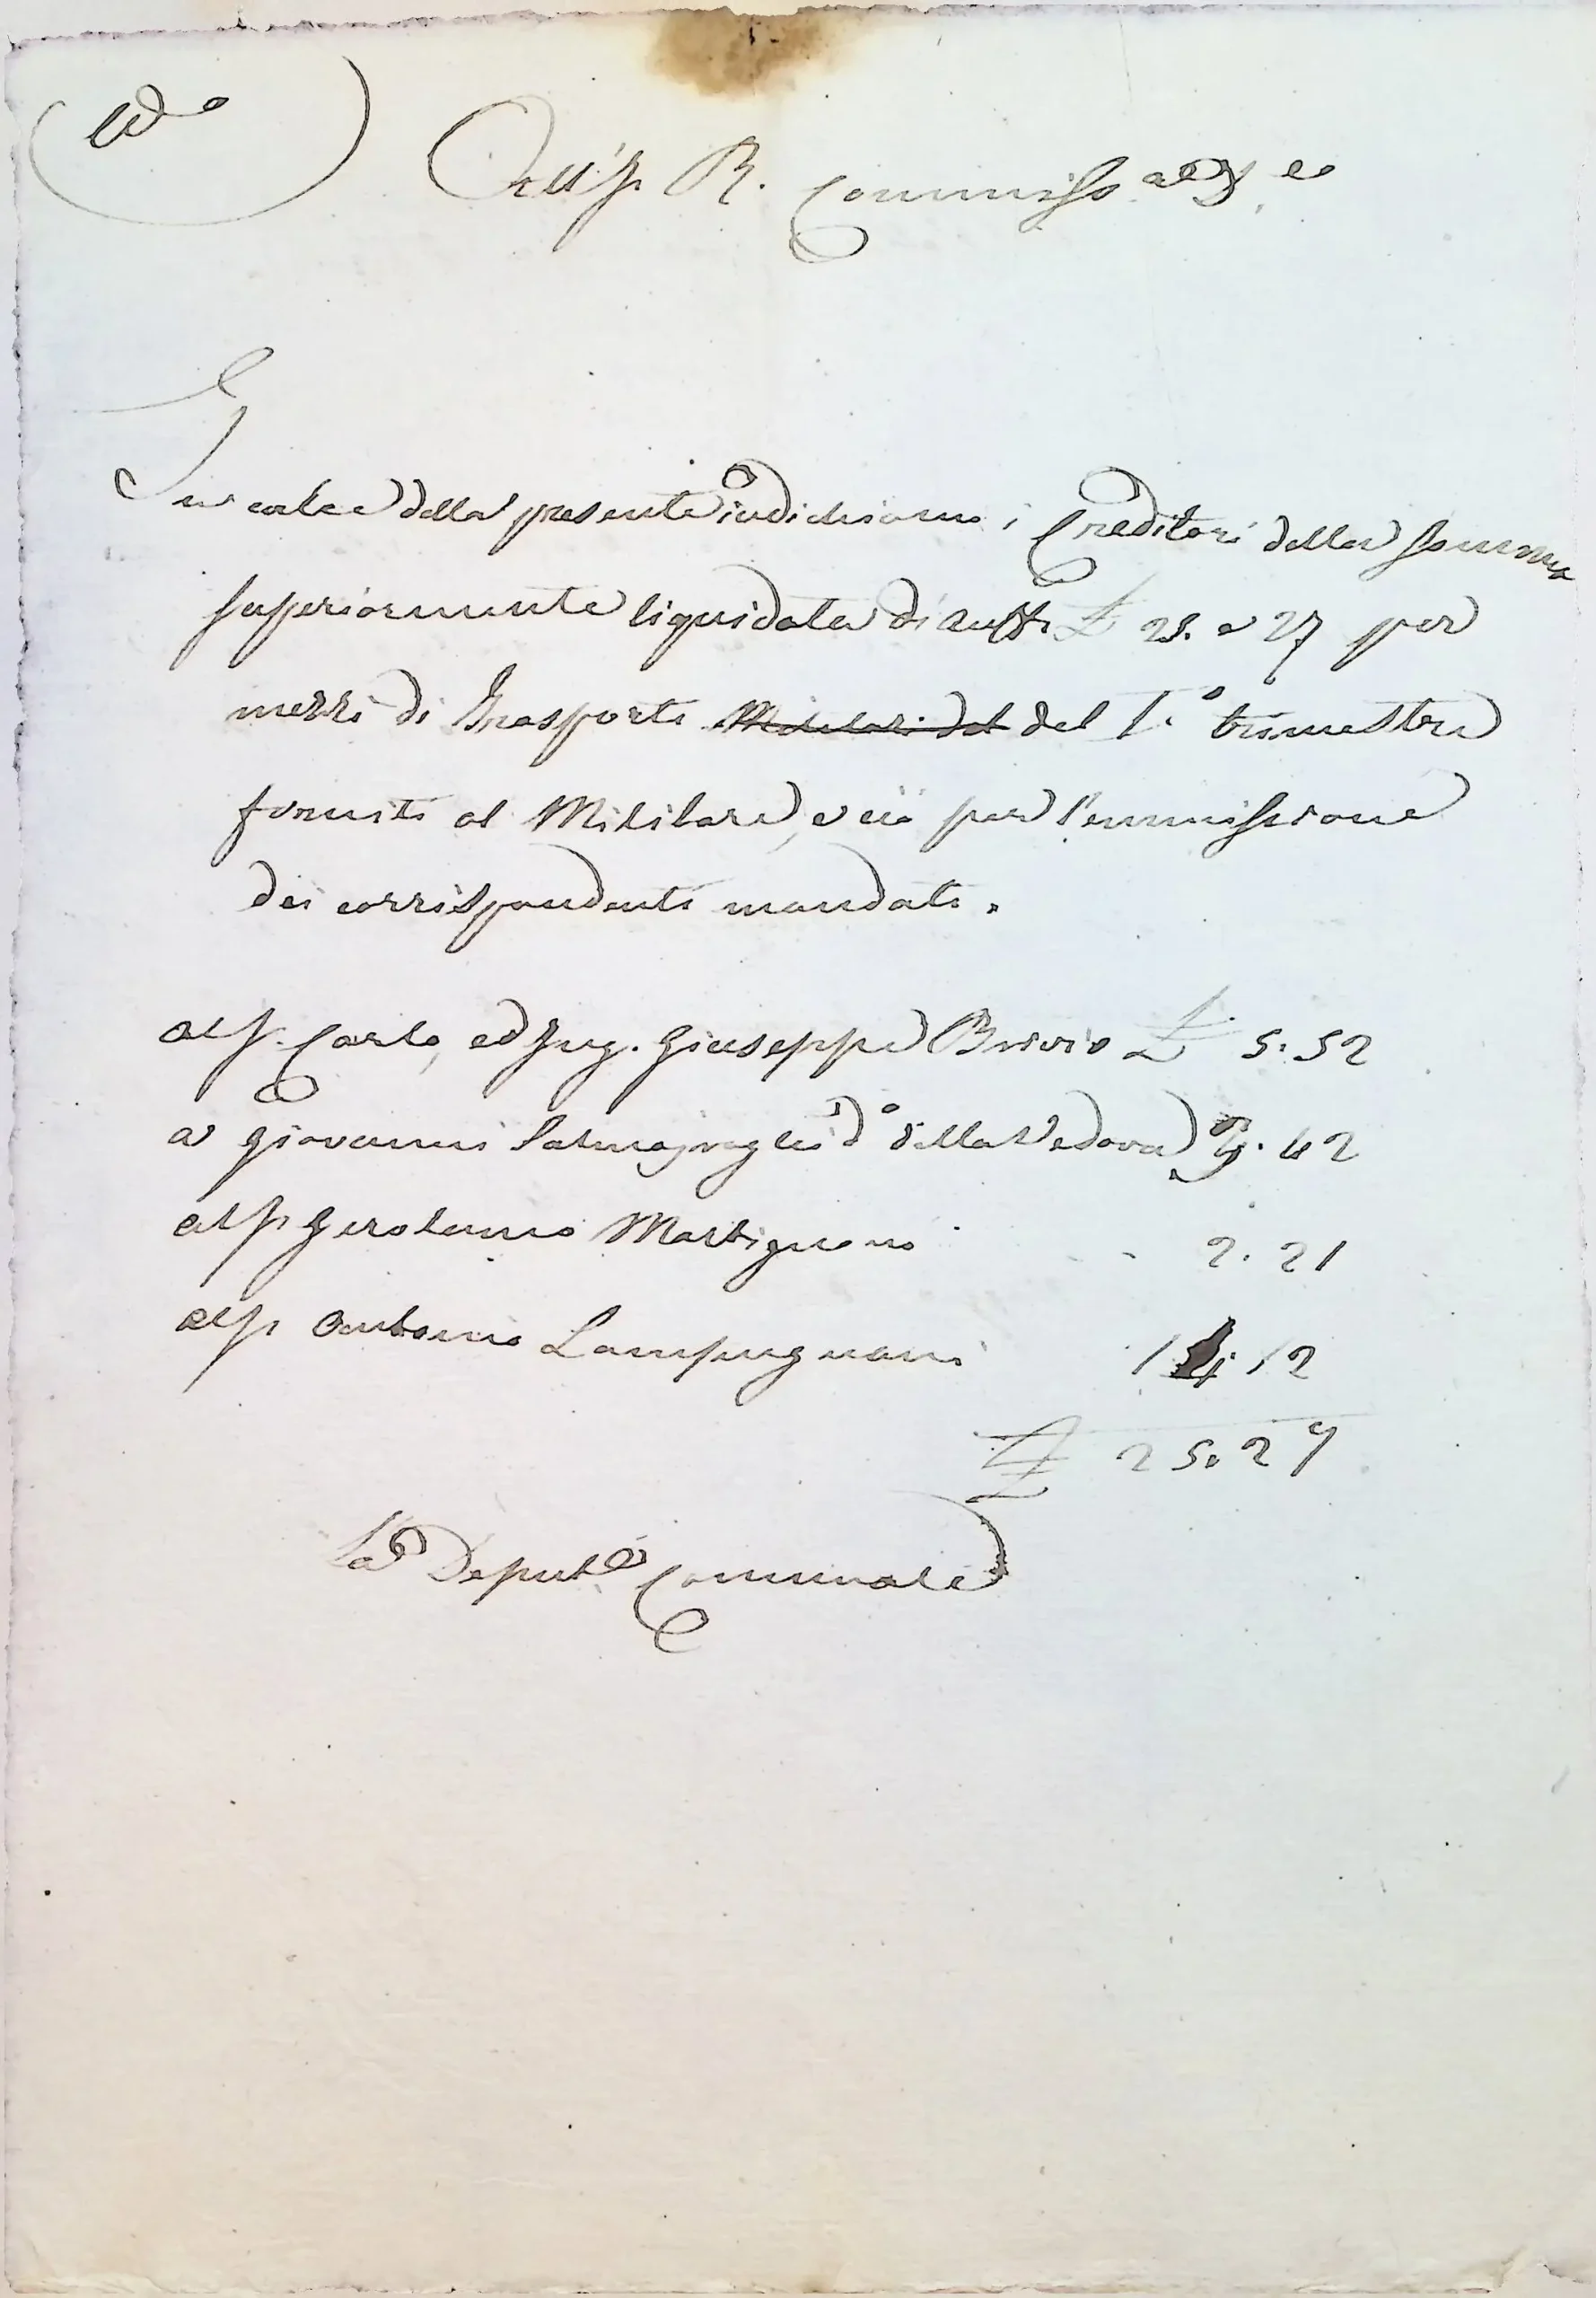 All'I. R. Commiss Dist le
In calce della presente indichiamo i Creditori della Somma
superiormente liquidata di Austr. £ 25. e 27 per
mezzi di Trasporti Militari del del 1.° trimestre
forniti al Militare, e ciò per l'emmissione
dei corrispondenti mandati.
al S. Carlo, ed Ing. Giuseppe Brivio £ 5.52
a Giovanni d° della Vedova 3.42
al Sr Gerolamo Martignoni 2.21
al Sr Antonio Lampugnani 14.12
£ 25.27
La Deput.e Communale